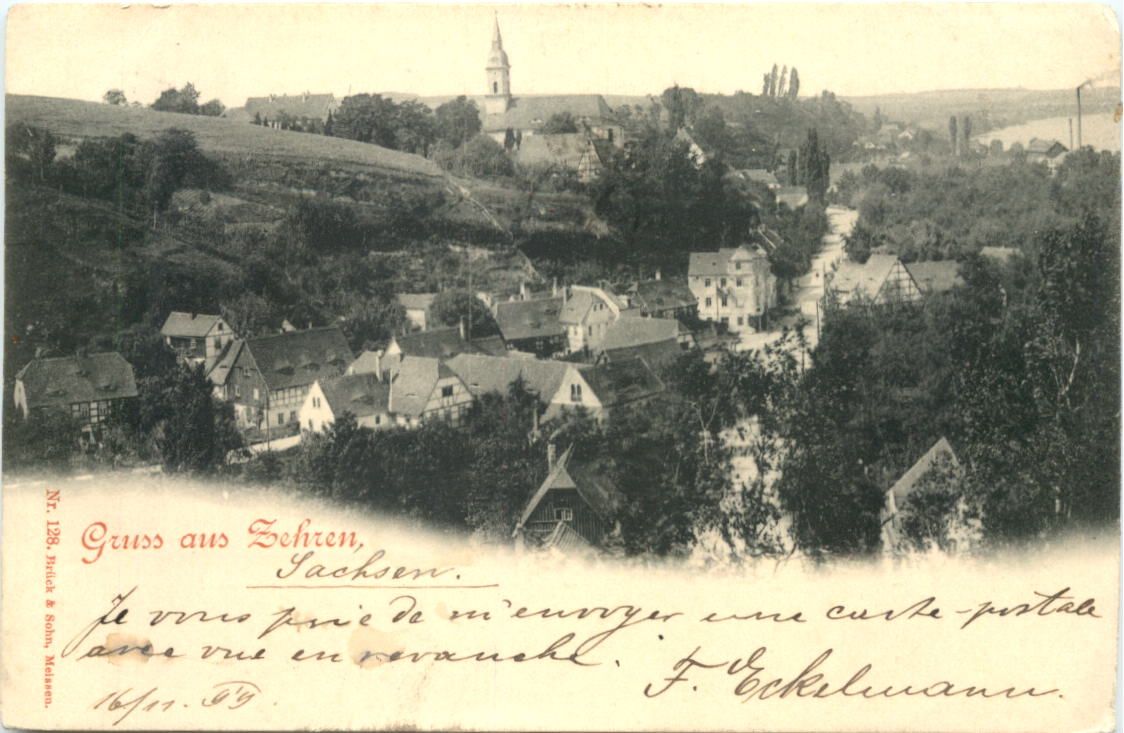 Gruss aus Zehren,
Sachsen.
Je vous prie de m'envoyer une carte-postale
avec vue en revanche.
F. Eckelmann.
16/11. 99.
Nr. 128. Brück & Sohn, Meissen.